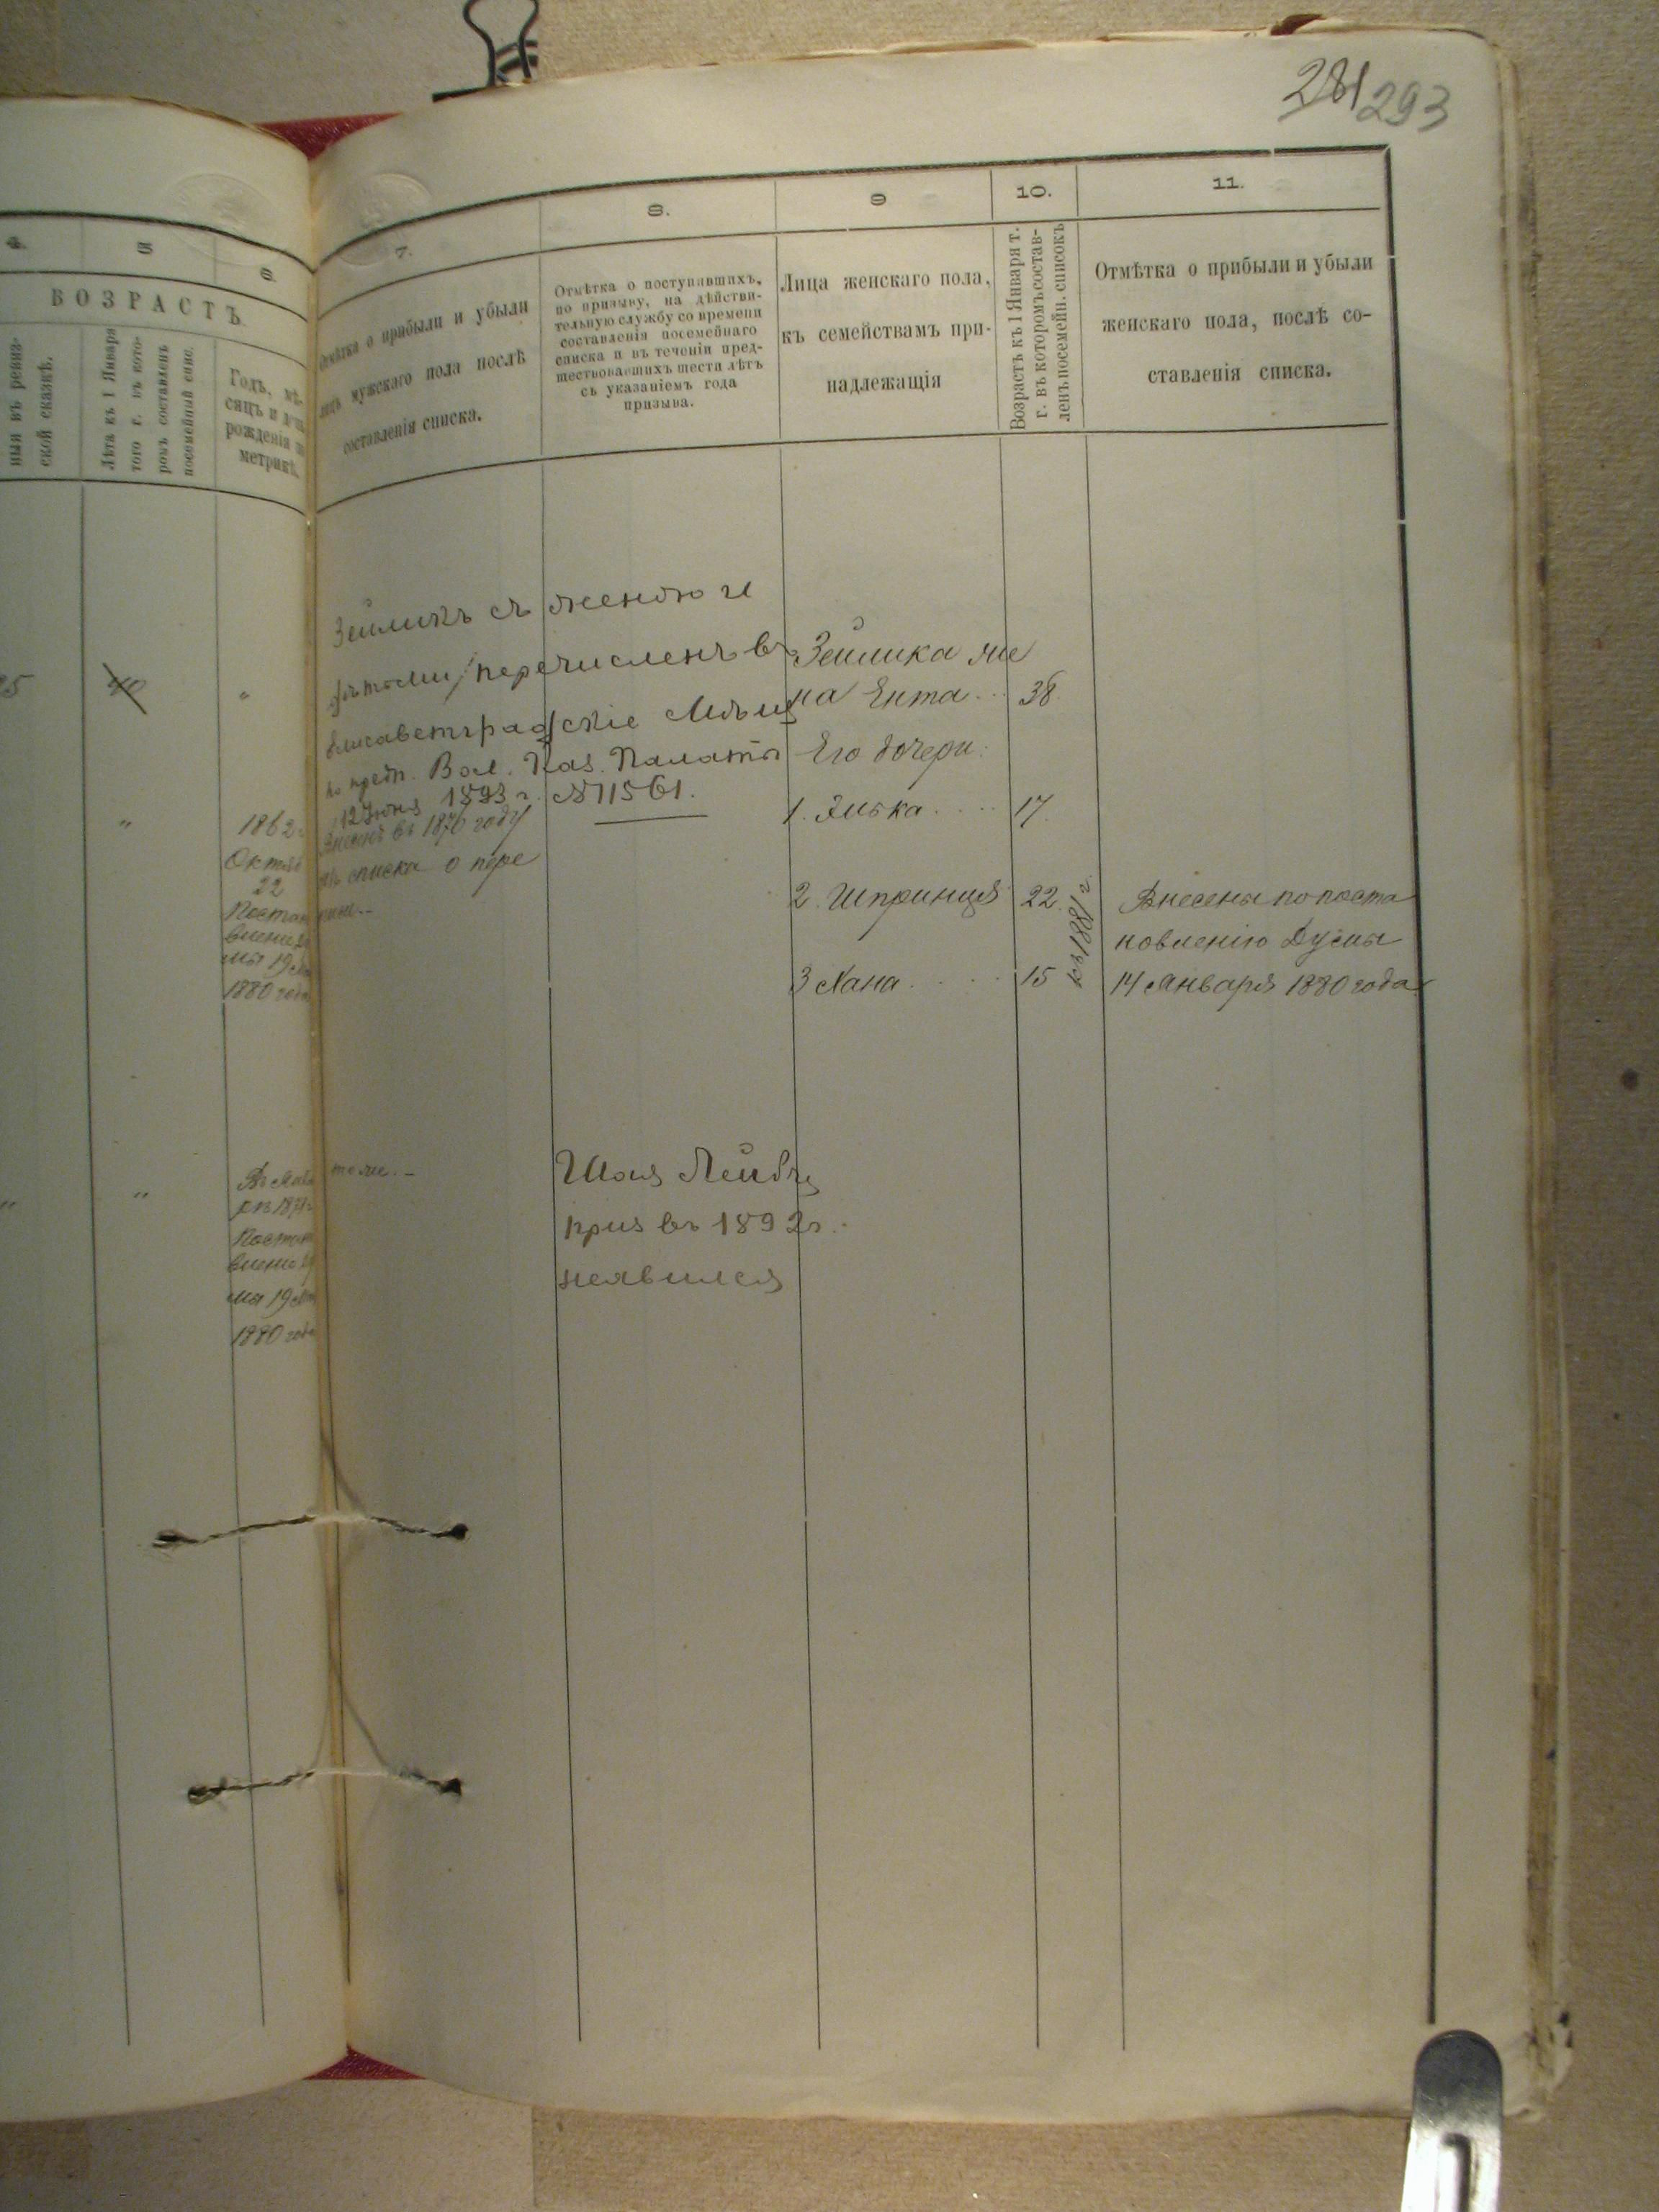 281 293
4.
5
6.
7.
8.
9
10.
11.
ВОЗРАСТЪ
ской сказкѣ.
Лѣта къ 1 Января
того г. въ кото-
ромъ составленъ
посемейный спис.
Годъ, мѣ-
сяцъ и день
рожденія по
метрикѣ.
Отмѣтка о прибыли и убыли
лицъ мужскаго пола послѣ
составленія списка.
Отмѣтка о поступавшихъ,
по призыву, на дѣйстви-
тельную службу со времени
составленія посемейнаго
списка и въ теченіи пред-
шествовавшихъ шести лѣтъ
съ указаніемъ года
призыва.
Лица женскаго пола,
къ семействамъ при-
надлежащія
Возрастъ къ 1 Января т.
г. въ которомъ состав-
ленъ посемейн. списокъ
Отмѣтка о прибыли и убыли
женскаго пола, послѣ со-
ставленія списка.
Зейликъ съ женою и
дѣтьми перечисленъ въ
Елисаветградскіе Мѣщ
по предп. Вол. Каз. Палаты
12 Іюня 1893 г. №11561.
внесенъ въ 1870 году
списка о пере
1862 г
Октяб
22
Постан
вленію
мы 19
1880 года
Зейлика же
на Ента... 38.
Его дочери:
1. Элька.... 17.
2. Шпринця 22.
3 Хана.... 15
къ 1881 г.
Внесены по поста
новленію Думы
14 Января 1880 года
1871
Постан
вленію
мы 19
1880 года
Шая Лейбъ
приз въ 1892 г.
неявился